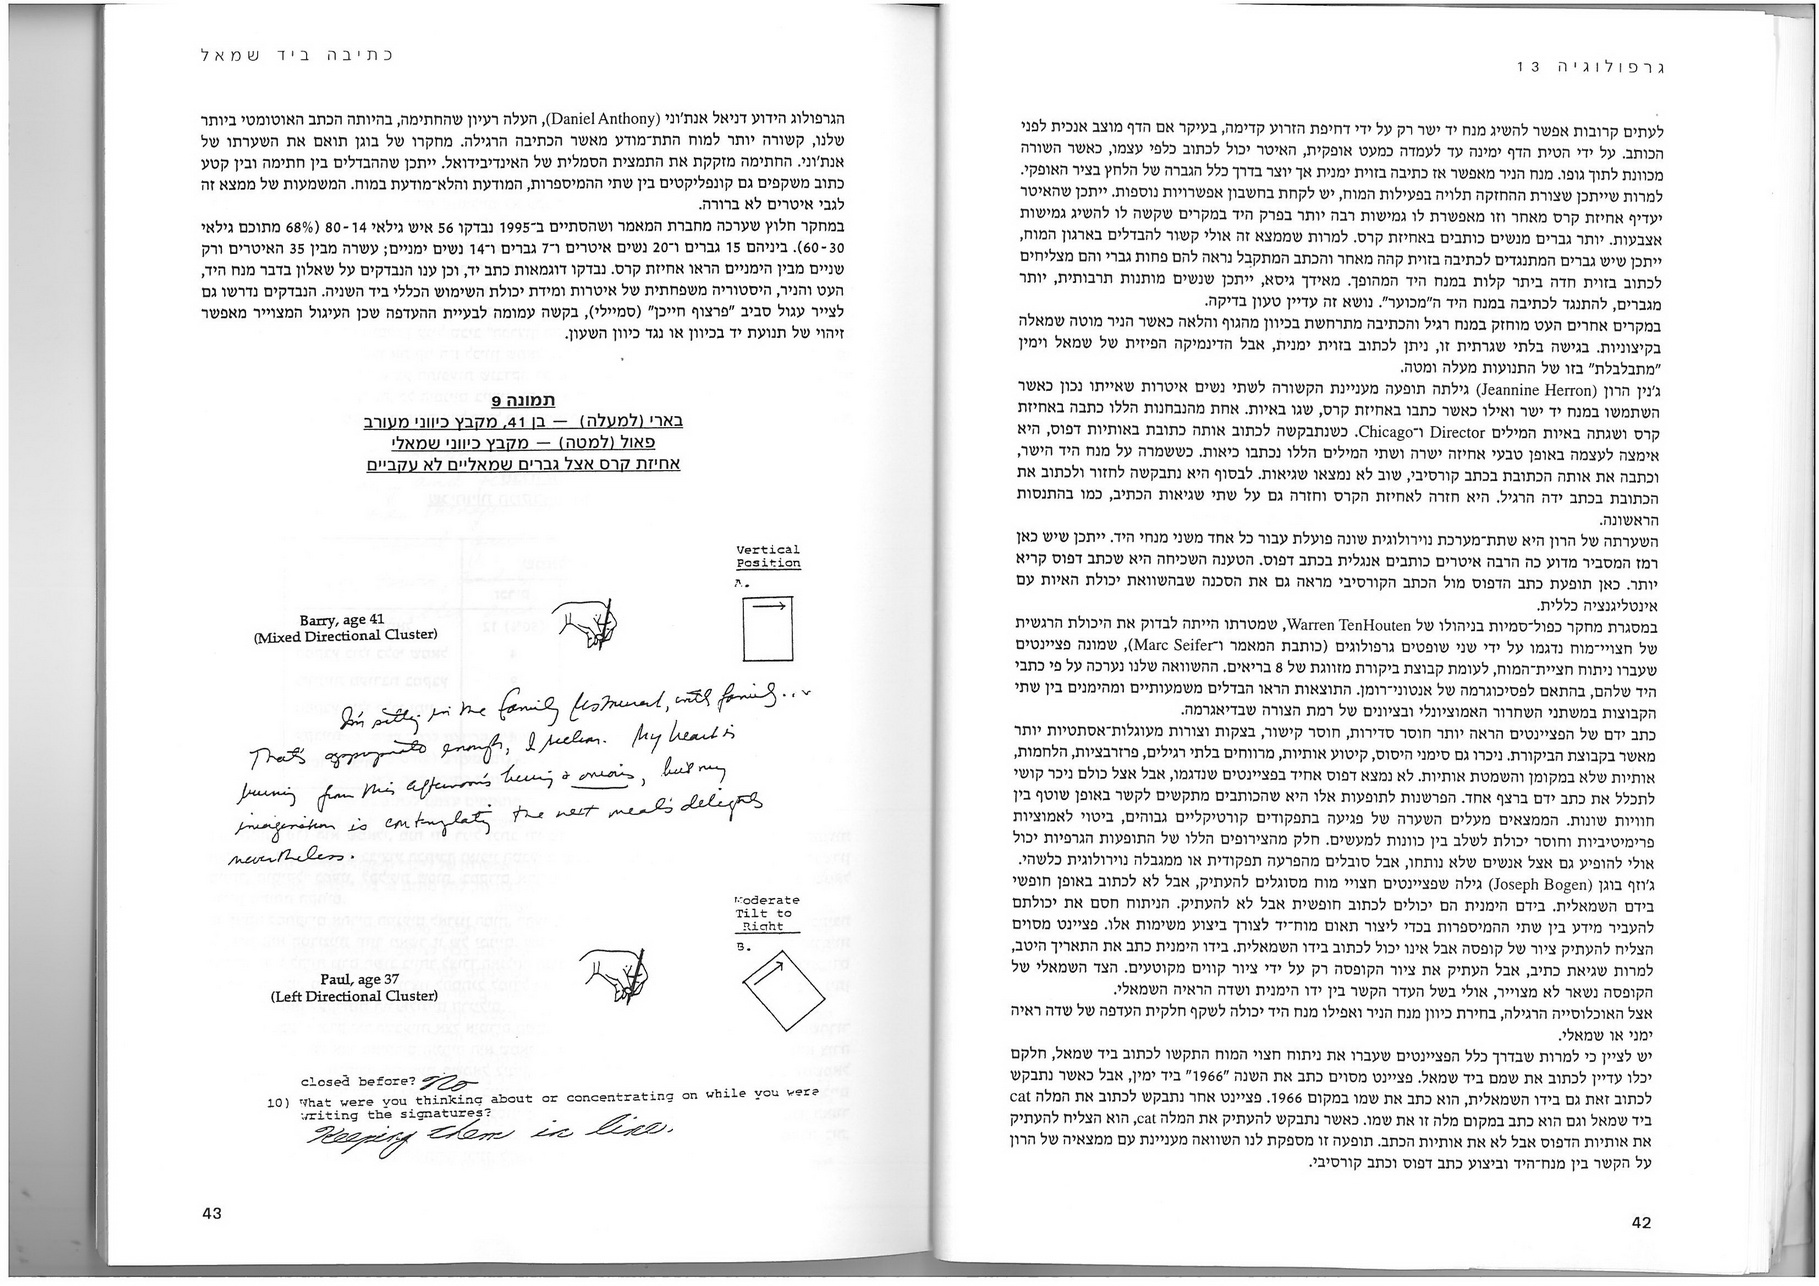 גרפולוגיה 13
לעתים קרובות אפשר להשיג מנח יד ישר רק על ידי דחיפת הזרוע קדימה, בעיקר אם הדף מוצב אנכית לפני
הכותב. על ידי הטית הדף ימינה עד לעמדה כמעט אופקית, האיטר יכול לכתוב כלפי עצמו, כאשר השורה
מכוונת לתוך גופו. מנח הניר מאפשר אז כתיבה בזוית ימנית אך יוצר בדרך כלל הגברה של הלחץ בציר האופקי.
למרות שייתכן שצורת ההחזקה תלויה בפעילות המוח, יש לקחת בחשבון אפשרויות נוספות. ייתכן שהאיטר
יעדיף אחיזת קרס מאחר וזו מאפשרת לו גמישות רבה יותר בפרק היד במקרים שקשה לו להשיג גמישות
אצבעות. יותר גברים מנשים כותבים באחיזת קרס. למרות שממצא זה אולי קשור להבדלים בארגון המוח,
ייתכן שיש גברים המתנגדים לכתיבה בזוית קהה מאחר והכתב המתקבל נראה להם פחות גברי והם מצליחים
לכתוב בזוית חדה ביתר קלות במנח היד המהופך. מאידך גיסא, ייתכן שנשים מותנות תרבותית, יותר
מגברים, להתנגד לכתיבה במנח היד ה"מכוער". נושא זה עדיין טעון בדיקה.
במקרים אחרים העט מוחזק במנח רגיל והכתיבה מתרחשת בכיוון מהגוף והלאה כאשר הניר מוטה שמאלה
בקיצוניות. בגישה בלתי שגרתית זו, ניתן לכתוב בזוית ימנית, אבל הדינמיקה הפיזית של שמאל וימין
"מתבלבלת" בזו של התנועות מעלה ומטה.
ג'נין הרון (Jeannine Herron) גילתה תופעה מעניינת הקשורה לשתי נשים איטרות שאייתו נכון כאשר
השתמשו במנח יד ישר ואילו כאשר כתבו באחיזת קרס, שגו באיות. אחת מהנבחנות הללו כתבה באחיזת
קרס ושגתה באיות המילים Director ו־Chicago. כשנתבקשה לכתוב אותה כתובת באותיות דפוס, היא
אימצה לעצמה באופן טבעי אחיזה ישרה ושתי המילים הללו נכתבו כיאות. כששמרה על מנח היד הישר,
וכתבה את אותה הכתובת בכתב קורסיבי, שוב לא נמצאו שגיאות. לבסוף היא נתבקשה לחזור ולכתוב את
הכתובת בכתב ידה הרגיל. היא חזרה לאחיזת הקרס וחזרה גם על שתי שגיאות הכתיב, כמו בהתנסות
הראשונה.
השערתה של הרון היא שתת־מערכת נוירולוגית שונה פועלת עבור כל אחד משני מנחי היד. ייתכן שיש כאן
רמז המסביר מדוע כה הרבה איטרים כותבים אנגלית בכתב דפוס. הטענה השכיחה היא שכתב דפוס קריא
יותר. כאן תופעת כתב הדפוס מול הכתב הקורסיבי מראה גם את הסכנה שבהשוואת יכולת האיות עם
אינטליגנציה כללית.
במסגרת מחקר כפול־סמיות בניהולו של Warren TenHouten, שמטרתו הייתה לבדוק את היכולת הרגשית
של חצויי־מוח נדגמו על ידי שני שופטים גרפולוגים (כותבת המאמר ו־Marc Seifer), שמונה פציינטים
שעברו ניתוח חציית־המוח, לעומת קבוצת ביקורת מזווגת של 8 בריאים. ההשוואה שלנו נערכה על פי כתבי
היד שלהם, בהתאם לפסיכוגרמה של אנטוני־רומן. התוצאות הראו הבדלים משמעותיים ומהימנים בין שתי
הקבוצות במשתני השחרור האמוציונלי ובציונים של רמת הצורה שבדיאגרמה.
כתב ידם של הפציינטים הראה יותר חוסר סדירות, חוסר קישור, בצקות וצורות מעוגלות־אסתטיות יותר
מאשר בקבוצת הביקורת. ניכרו גם סימני היסוס, קיטוע אותיות, מרווחים בלתי רגילים, פרזרבציות, הלחמות,
אותיות שלא במקומן והשמטת אותיות. לא נמצא דפוס אחיד בפציינטים שנדגמו, אבל אצל כולם ניכר קושי
לתכלל את כתב ידם ברצף אחד. הפרשנות לתופעות אלו היא שהכותבים מתקשים לקשר באופן שוטף בין
חוויות שונות. הממצאים מעלים השערה של פגיעה בתפקודים קורטיקליים גבוהים, ביטוי לאמוציות
פרימיטיביות וחוסר יכולת לשלב בין כוונות למעשים. חלק מהצירופים הללו של התופעות הגרפיות יכול
אולי להופיע גם אצל אנשים שלא נותחו, אבל סובלים מהפרעה תפקודית או ממגבלה נוירולוגית כלשהי.
ג'וזף בוגן (Joseph Bogen) גילה שפציינטים חצויי מוח מסוגלים להעתיק, אבל לא לכתוב באופן חופשי
בידם השמאלית. בידם הימנית הם יכולים לכתוב חופשית אבל לא להעתיק. הניתוח חסם את יכולתם
להעביר מידע בין שתי ההמיספרות בכדי ליצור תאום מוח־יד לצורך ביצוע משימות אלו. פציינט מסוים
הצליח להעתיק ציור של קופסה אבל אינו יכול לכתוב בידו השמאלית. בידו הימנית כתב את התאריך היטב,
למרות שגיאת כתיב, אבל העתיק את ציור הקופסה רק על ידי ציור קווים מקוטעים. הצד השמאלי של
הקופסה נשאר לא מצוייר, אולי בשל העדר הקשר בין ידו הימנית ושדה הראיה השמאלי.
אצל האוכלוסייה הרגילה, בחירת כיוון מנח הניר ואפילו מנח היד יכולה לשקף חלקית העדפה של שדה ראיה
ימני או שמאלי.
יש לציין כי למרות שבדרך כלל הפציינטים שעברו את ניתוח חצוי המוח התקשו לכתוב ביד שמאל, חלקם
יכלו עדיין לכתוב את שמם ביד שמאל. פציינט מסוים כתב את השנה "1966" ביד ימין, אבל כאשר נתבקש
לכתוב זאת גם בידו השמאלית, הוא כתב את שמו במקום 1966. פציינט אחר נתבקש לכתוב את המלה cat
ביד שמאל וגם הוא כתב במקום מלה זו את שמו. כאשר נתבקש להעתיק את המלה cat, הוא הצליח להעתיק
את אותיות הדפוס אבל לא את אותיות הכתב. תופעה זו מספקת לנו השוואה מעניינת עם ממצאיה של הרון
על הקשר בין מנח־היד וביצוע כתב דפוס וכתב קורסיבי.
42
כתיבה ביד שמאל
הגרפולוג הידוע דניאל אנת'וני (Daniel Anthony), העלה רעיון שהחתימה, בהיותה הכתב האוטומטי ביותר
שלנו, קשורה יותר למוח התת־מודע מאשר הכתיבה הרגילה. מחקרו של בוגן תואם את השערתו של
אנת'וני. החתימה מזקקת את התמצית הסמלית של האינדיבידואל. ייתכן שההבדלים בין חתימה ובין קטע
כתוב משקפים גם קונפליקטים בין שתי ההמיספרות, המודעת והלא־מודעת במוח. המשמעות של ממצא זה
לגבי איטרים לא ברורה.
במחקר חלוץ שערכה מחברת המאמר ושהסתיים ב־1995 נבדקו 56 איש גילאי 80-14 (68% מתוכם גילאי
60-30). ביניהם 15 גברים ו־20 נשים איטרים ו־7 גברים ו־14 נשים ימניים; עשרה מבין 35 האיטרים ורק
שניים מבין הימניים הראו אחיזת קרס. נבדקו דוגמאות כתב יד, וכן ענו הנבדקים על שאלון בדבר מנח היד,
העט והניר, היסטוריה משפחתית של איטרות ומידת יכולת השימוש הכללי ביד השניה. הנבדקים נדרשו גם
לצייר עגול סביב "פרצוף חייכן" (סמיילי), בקשה עמומה לבעיית ההעדפה שכן העיגול המצוייר מאפשר
זיהוי של תנועת יד בכיוון או נגד כיוון השעון.
תמונה 9
בארי (למעלה) — בן 41, מקבץ כיווני מעורב
פאול (למטה) — מקבץ כיווני שמאלי
אחיזת קרס אצל גברים שמאליים לא עקביים
Vertical
Position
A.
Barry, age 41
(Mixed Directional Cluster)
I'm sitting in the family restaurant, with family...
That's appropriate enough, I reckon. My heart is
burning from this afternoon's herring & onions, but my
imagination is contemplating the next meal's delights
nevertheless.
Moderate
Tilt to
Right
B.
Paul, age 37
(Left Directional Cluster)
closed before? No
10) What were you thinking about or concentrating on while you were
writing the signatures?
Keeping them in line.
43